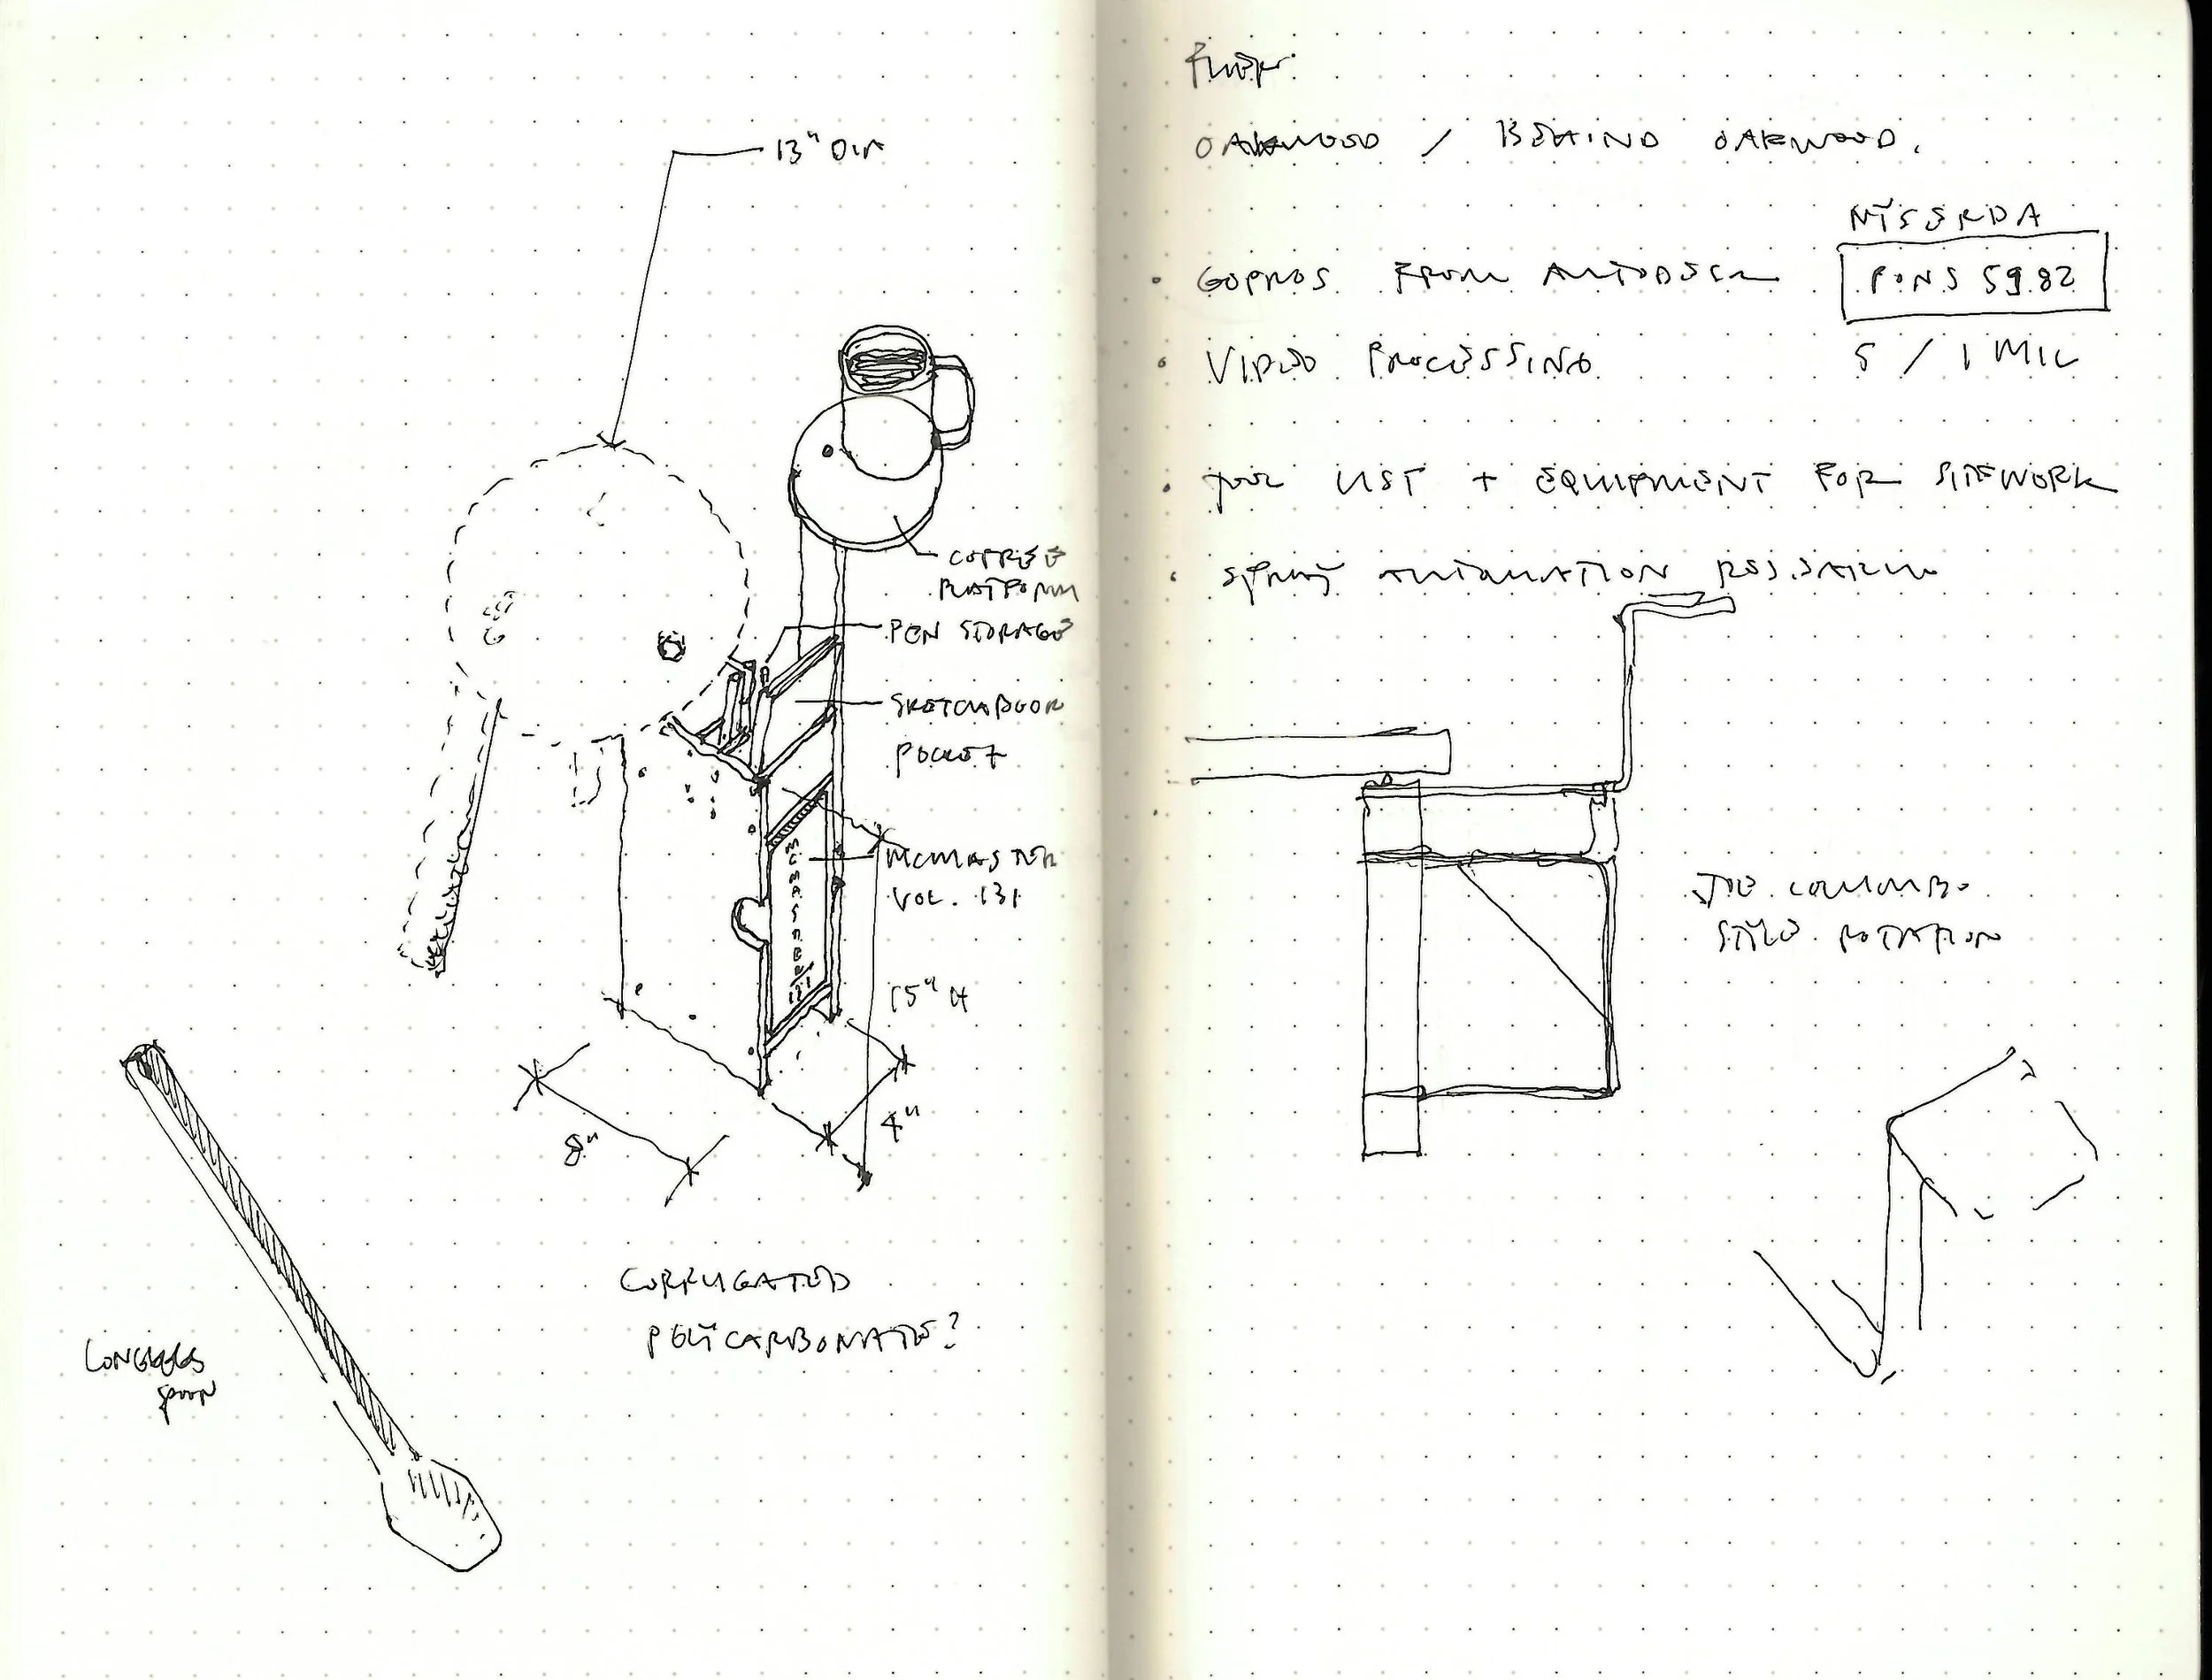 13" DIA
COFFEE
PLATFORM
PEN STORAGE
SKETCHBOOK
POCKET
MCMASTER
VOL. 131
15" H
4"
8"
CORRUGATED
POLYCARBONATE?
SPOON
OAKWOOD / BEHIND OAKWOOD.
GOPROS FROM AUTODESK
PONS 5982
VIDEO PROCESSING
5 / 1 MIL
TOOL LIST + EQUIPMENT FOR SITEWORK
SPRAY AUTOMATION RESEARCH
JOE COLUMBO
STYLE ROTATION